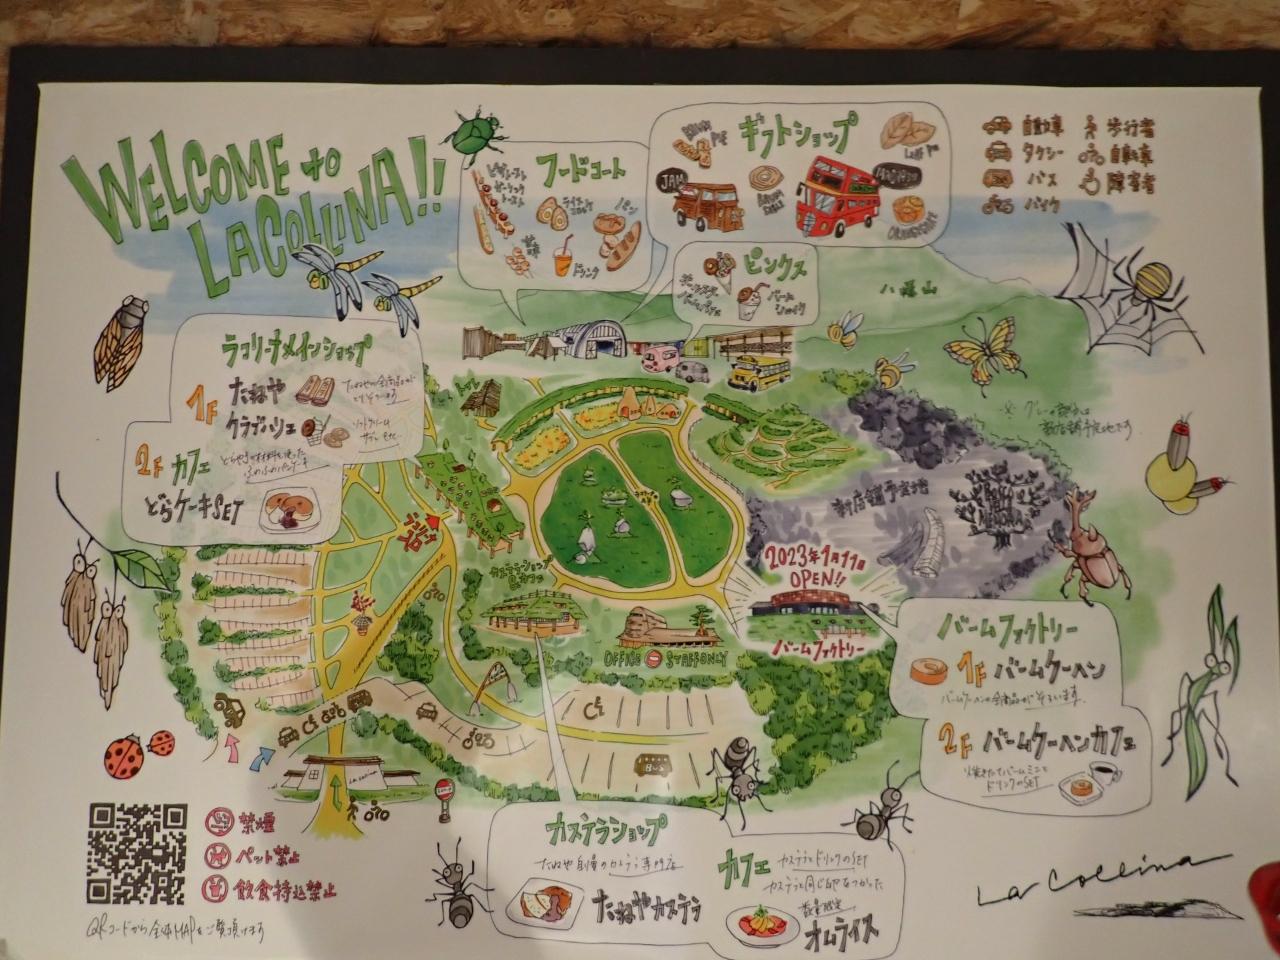 WELCOME to
LA COLLINA!!
フードコート
パン
ドリンク
ギフトショップ
JAM
自動車
タクシー
バス
バイク
歩行者
自転車
障害者
ピンクス
八幡山
ラコリーナメインショップ
1F たねや
クラブハリエ
2F カフェ
どらケーキSET
トイレ
新店舗予定地
カステラショップ
&カフェ
2023年1月11日
OPEN!!
バームファクトリー
OFFICE STAFF ONLY
BUS
La Collina
バームファクトリー
1F バームクーヘン
バームクーヘンの全商品がそろいます。
2F バームクーヘンカフェ
焼きたてバームミニと
ドリンクのSET
禁煙
ペット禁止
飲食持込禁止
QRコードから全体MAPをご覧頂けます
カステラショップ
たねや自慢のカステラ専門店
たねやカステラ
カフェ
カステラとドリンクのSET
カステラと同じ卵をつかった
数量限定
オムライス
La Collina